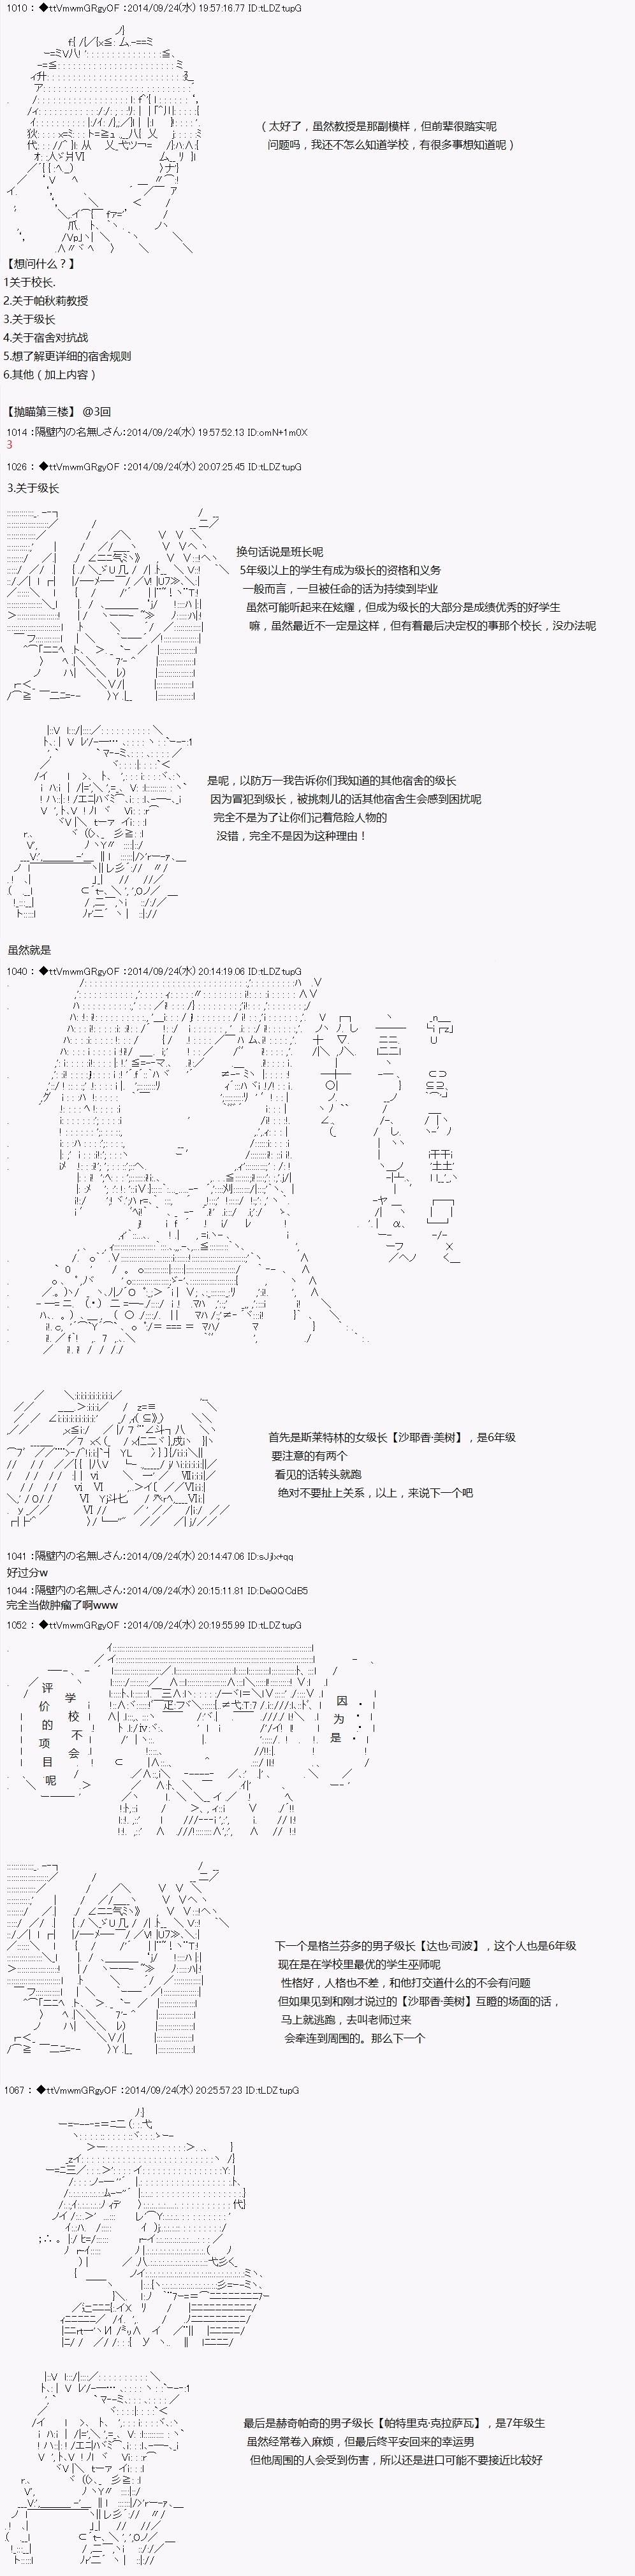 1010 : ◆ttVmwmGRgyOF :2014/09/24(水) 19:57:16.77 ID:tLDZtupG
（太好了，虽然教授是那副模样，但前辈很踏实呢
问题吗，我还不怎么知道学校，有很多事想知道呢）
【想问什么？】
1关于校长.
2.关于帕秋莉教授
3.关于级长
4.关于宿舍对抗战
5.想了解更详细的宿舍规则
6.其他（加上内容）
【抛瞄第三楼】 @3回
1014 : 隔壁内の名無しさん : 2014/09/24(水) 19:57:52.13 ID:omN+1m0X
3
1026 : ◆ttVmwmGRgyOF :2014/09/24(水) 20:07:25.45 ID:tLDZtupG
3.关于级长
换句话说是班长呢
5年级以上的学生有成为级长的资格和义务
一般而言，一旦被任命的话为持续到毕业
虽然可能听起来在炫耀，但成为级长的大部分是成绩优秀的好学生
嘛，虽然最近不一定是这样，但有着最后决定权的事那个校长，没办法呢
是呢，以防万一我告诉你们我知道的其他宿舍的级长
因为冒犯到级长，被挑刺儿的话其他宿舍生会感到困扰呢
完全不是为了让你们记着危险人物的
没错，完全不是因为这种理由！
虽然就是
1040 : ◆ttVmwmGRgyOF :2014/09/24(水) 20:14:19.06 ID:tLDZtupG
首先是斯莱特林的女级长【沙耶香·美树】，是6年级
要注意的有两个
看见的话转头就跑
绝对不要扯上关系，以上，来说下一个吧
1041 : 隔壁内の名無しさん : 2014/09/24(水) 20:14:47.06 ID:sJjIx+qq
好过分w
1044 : 隔壁内の名無しさん : 2014/09/24(水) 20:15:11.81 ID:DeQQCdB5
完全当做肿瘤了啊www
1052 : ◆ttVmwmGRgyOF :2014/09/24(水) 20:19:55.99 ID:tLDZtupG
因为是···
学校不会
评价的项目呢
下一个是格兰芬多的男子级长【达也·司波】，这个人也是6年级
现在是在学校里最优的学生巫师呢
性格好，人格也不差，和他打交道什么的不会有问题
但如果见到和刚才说过的【沙耶香·美树】互瞪的场面的话，
马上就逃跑，去叫老师过来
会牵连到周围的。那么下一个
1067 : ◆ttVmwmGRgyOF :2014/09/24(水) 20:25:57.23 ID:tLDZtupG
最后是赫奇帕奇的男子级长【帕特里克·克拉萨瓦】，是7年级生
虽然经常卷入麻烦，但最后终平安回来的幸运男
但他周围的人会受到伤害，所以还是进口可能不要接近比较好